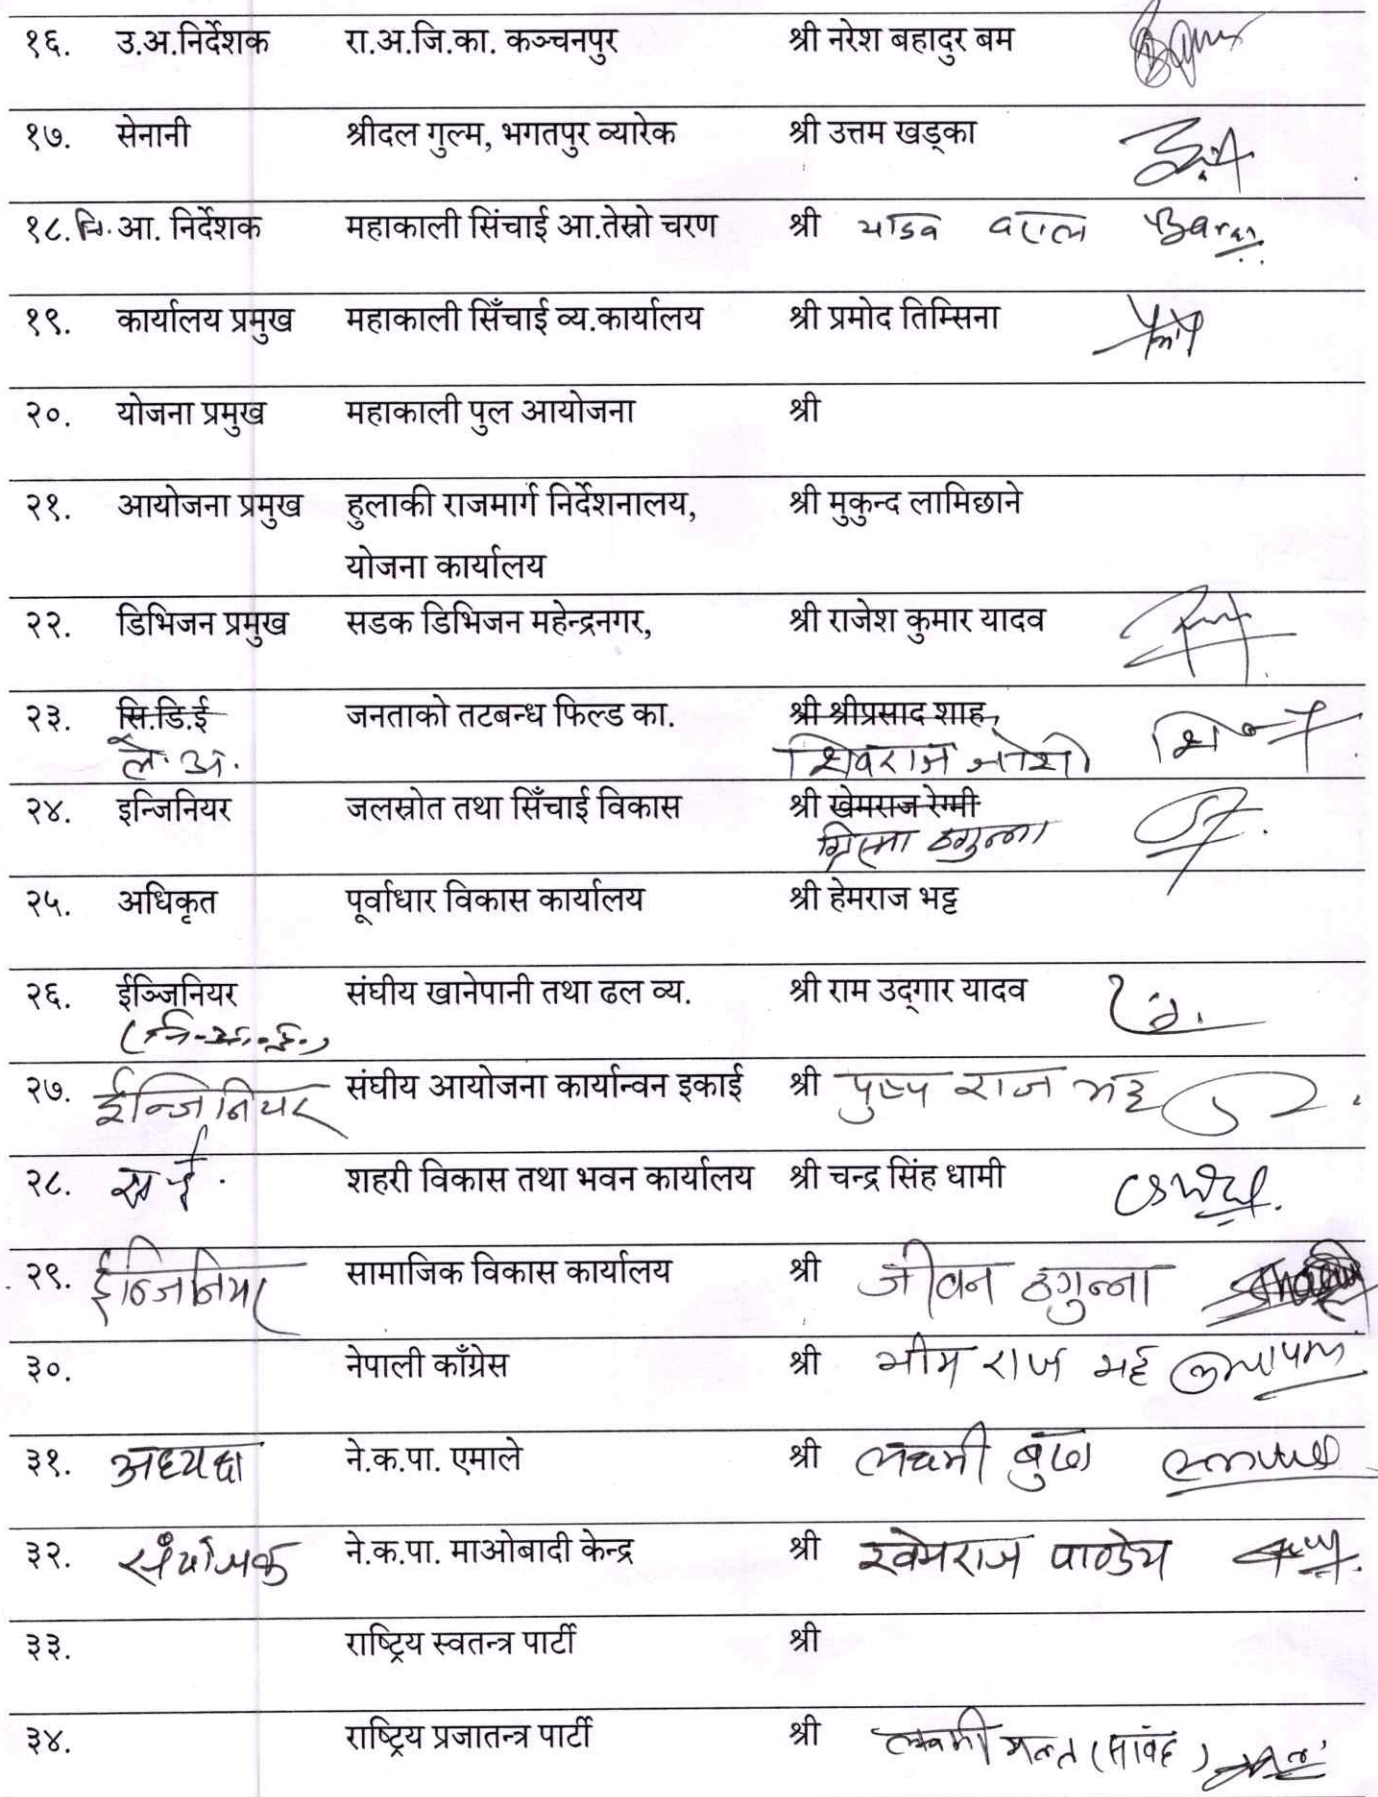 १६. उ.अ.निर्देशक रा.अ.जि.का. कञ्चनपुर श्री नरेश बहादुर बम
१७. सेनानी श्रीदल गुल्म, भगतपुर व्यारेक श्री उत्तम खड्का
१८. नि. आ. निर्देशक महाकाली सिंचाई आ.तेस्रो चरण श्री
१९. कार्यालय प्रमुख महाकाली सिँचाई व्य.कार्यालय श्री प्रमोद तिम्सिना
२०. योजना प्रमुख महाकाली पुल आयोजना श्री
२१. आयोजना प्रमुख हुलाकी राजमार्ग निर्देशनालय, श्री मुकुन्द लामिछाने
योजना कार्यालय
२२. डिभिजन प्रमुख सडक डिभिजन महेन्द्रनगर, श्री राजेश कुमार यादव
२३. सि.डि.ई जनताको तटबन्ध फिल्ड का. श्री श्रीप्रसाद शाह,
ले. अ. शिवराज जोशी
२४. इन्जिनियर जलस्रोत तथा सिँचाई विकास श्री खेमराज रेग्मी
ठगुन्ना
२५. अधिकृत पूर्वाधार विकास कार्यालय श्री हेमराज भट्ट
२६. ईञ्जिनियर संघीय खानेपानी तथा ढल व्य. श्री राम उद्गार यादव
२७. ईन्जिनियर संघीय आयोजना कार्यान्वन इकाई श्री पुष्प राज भट्ट
२८. शहरी विकास तथा भवन कार्यालय श्री चन्द्र सिंह धामी
२९. ईन्जिनियर सामाजिक विकास कार्यालय श्री जीवन ठगुन्ना
३०. नेपाली काँग्रेस श्री भीम राज भट्ट
३१. अध्यक्ष ने.क.पा. एमाले श्री लक्ष्मी बुढा
३२. संयोजक ने.क.पा. माओबादी केन्द्र श्री खेमराज पाण्डेय
३३. राष्ट्रिय स्वतन्त्र पार्टी श्री
३४. राष्ट्रिय प्रजातन्त्र पार्टी श्री